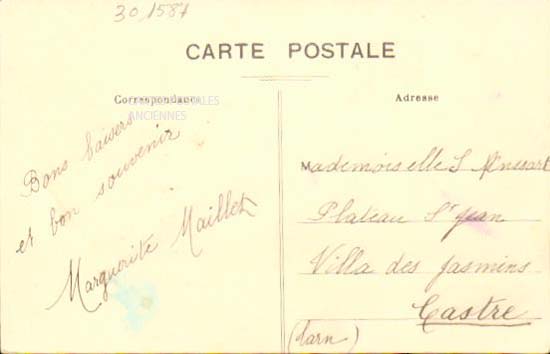 30,1587
CARTE POSTALE
Correspondance
ALES
ANCIENNES
Bons baisers
et bon souvenir
Marguerite Maillet
Adresse
Mademoiselle S
Plateau St Jean
Villa des Jasmins
Castre
(Tarn)